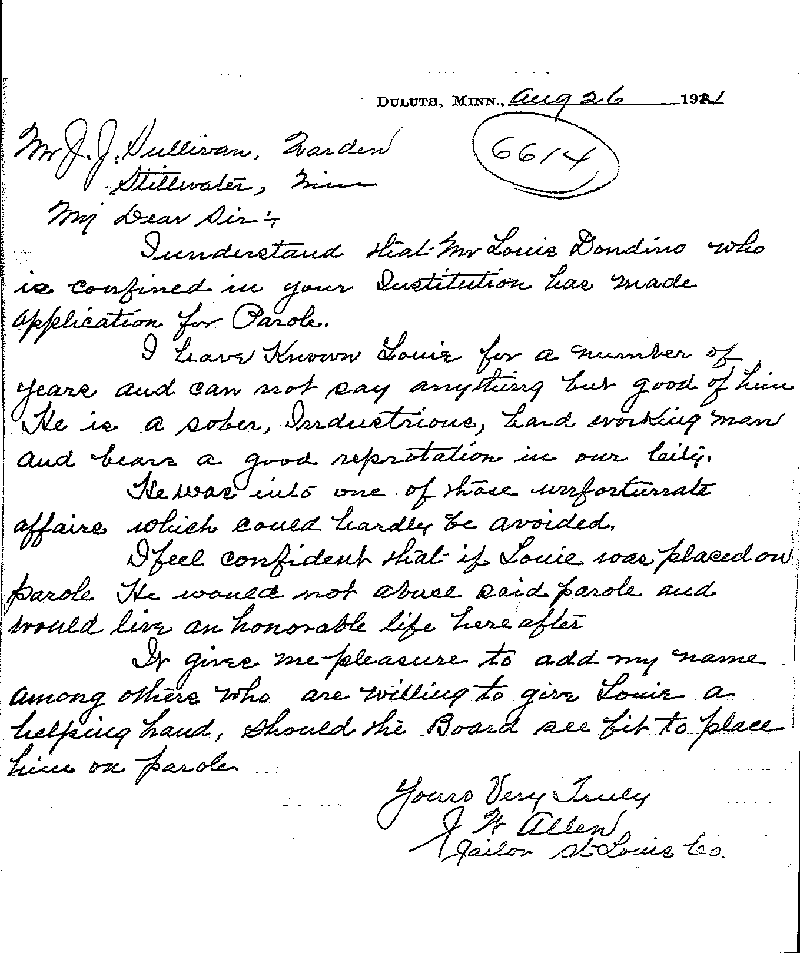 DULUTH, MINN., Aug 26 1921
6614
Mr J. J. Sullivan, Warden
Stillwater, Minn
My Dear Sir:-
I understand that Mr Louis Dondino who
is confined in your Institution has made
application for Parole.
I have Known Louie for a number of
years and can not say anything but good of him
He is a sober, Industrious, hard working man
and bears a good reputation in our City.
He was into one of those unfortunate
affairs which could hardly be avoided.
I feel confident that if Louie was placed on
parole He would not abuse said parole and
would live an honorable life hereafter
It gives me pleasure to add my name
among others who are willing to give Louie a
helping hand, should the Board see fit to place
him on parole
Yours Very Truly
J W Allen
Jailor St Louis Co.